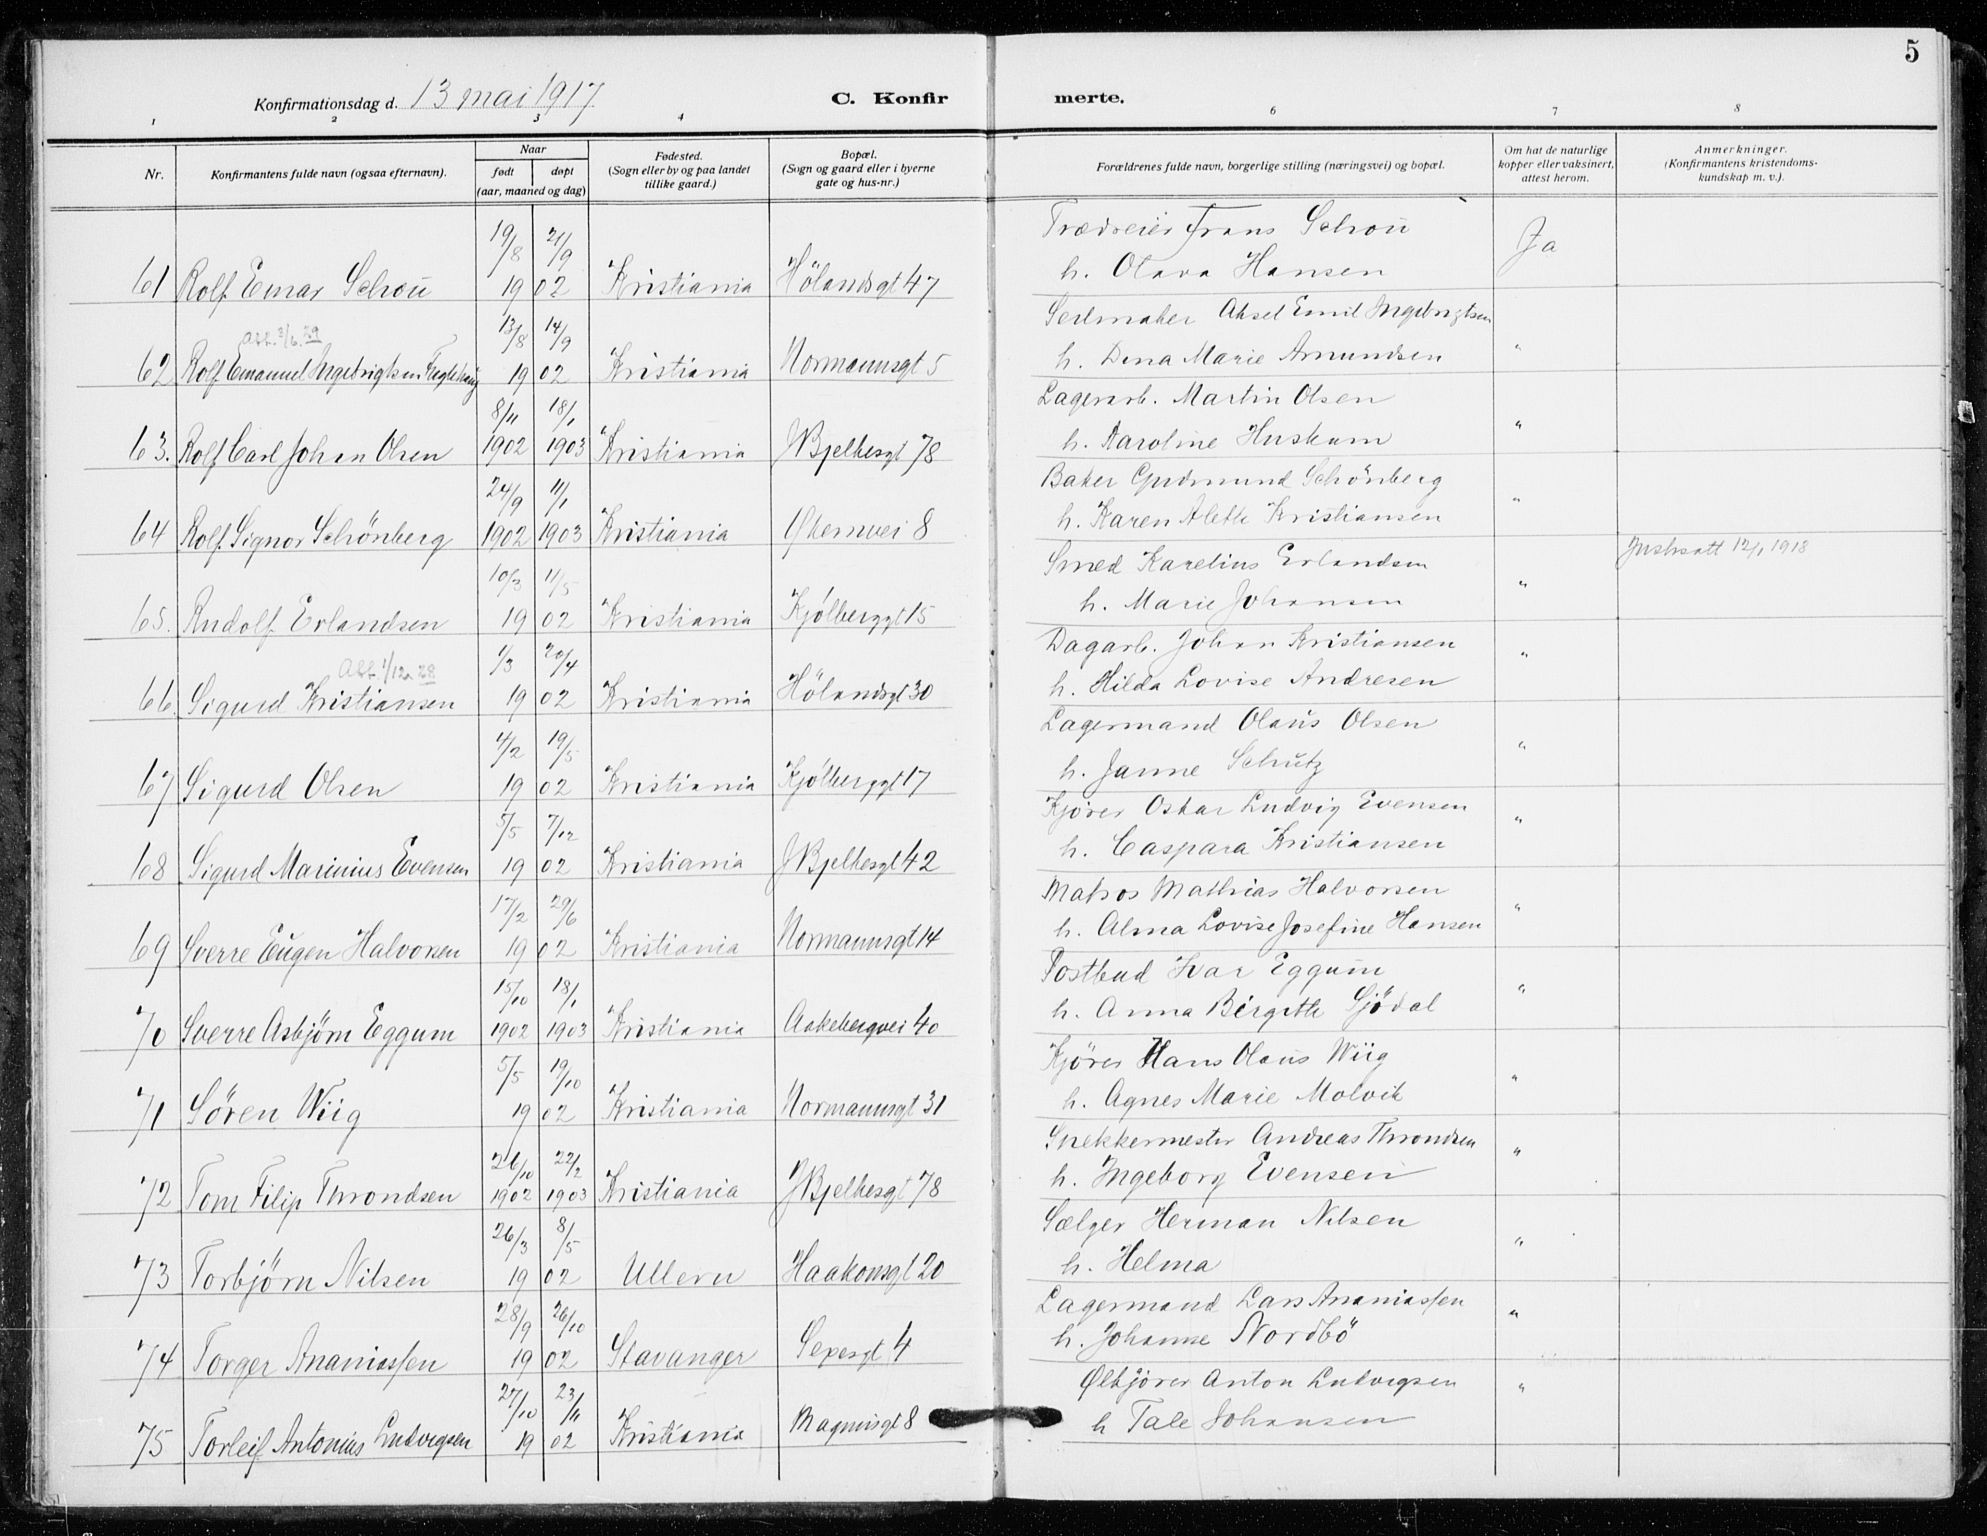 5
Konfirmationsdag d. 13 mai 1917. C. Konfir merte.
1 2 3 4 6 7 8
Nr. Konfirmantens fulde navn (ogsaa efternavn). Naar født døpt (aar, maaned og dag) Fødested. (Sogn eller by og paa landet tillike gaard.) Bopæl. (Sogn og gaard eller i byerne gate og hus-nr.) Forældrenes fulde navn, borgerlige stilling (næringsvei) og bopæl. Om hat de naturlige kopper eller vaksinert, attest herom. Anmerkninger. (Konfirmantens kristendoms-kundskap m. v.).
19/8 21/9 Trædreier Frans Schou Ja
61 Rolf Einar Schou 19 02 Kristiania Hölandsgt 47 h. Olava Hansen
Att. 3/6. 29 13/8 14/9 Seilmaker Aksel Emil Ingebrigtsen
62 Rolf Emanuel Ingebrigtsen 19 02 Kristiania Normannsgt 5 h. Dina Marie Amundsen "
8/11 18/1 Lagerarb. Martin Olsen
63. Rolf Carl Johan Olsen 1902 1903 Kristiania JBjelkesgt 78 h. Karoline Huskum "
24/9 11/1 Baker Gudmund Schönberg
64 Rolf Signor Schönberg 1902 1903 Kristiania Økernvei 8 h. Karen Alette Kristiansen "
10/3 11/5 Smed Karelius Erlandsen 12/1 1918
65. Rudolf Erlandsen 19 02 Kristiania Kjølberggt 15 h. Marie Johansen "
Att. 1/12. 28 1/3 20/4 Dagarb. Johan Kristiansen
66. Sigurd Kristiansen 19 02 Kristiania Hölandsgt 30 h. Hilda Lovise Andresen "
4/2 19/5 Lagermand Olaus Olsen
67 Sigurd Olsen 19 02 Kristiania Kjølberggt 17 h. Janne Schutz "
5/5 7/12 Kjører Oskar Ludvig Evensen
68 Sigurd Marinius Evensen 19 02 Kristiania JBjelkesgt 42 h. Caspara Kristiansen "
17/2 29/6 Matros Mathias Halvorsen
69 Sverre Eugen Halvorsen 19 02 Kristiania Normannsgt 14 h. Alma Lovise Josefine Hansen "
15/10 18/1 Postbud Ivar Eggum
70 Sverre Asbjörn Eggum 1902 1903 Kristiania Aakebergvei 40 h. Anna Birgitte Sjödal "
5/5 19/10 Kjörer Hans Olaus Wiig
71 Sören Wiig 19 02 Kristiania Normannsgt 31 h. Agnes Marie Molvik "
26/10 22/2 Snekkermester Andreas Throndsen
72 Tom Filip Throndsen 1902 1903 Kristiania JBjelkesgt 78 h. Ingeborg Evensen "
26/3 8/5 Sælger Herman Nilsen
73 Torbjörn Nilsen 19 02 Ullern Haakonsgt 20 h. Helma "
28/9 26/10 Lagermand Lars Ananiassen
74 Torger Ananiassen 19 02 Stavanger Sexesgt 4 h. Johanne Nordbö "
27/10 23/11 Ølkjörer Anton Ludvigsen
75 Torleif Antonius Ludvigsen 19 02 Kristiania Magnusgt 8 h Tale Johansen "